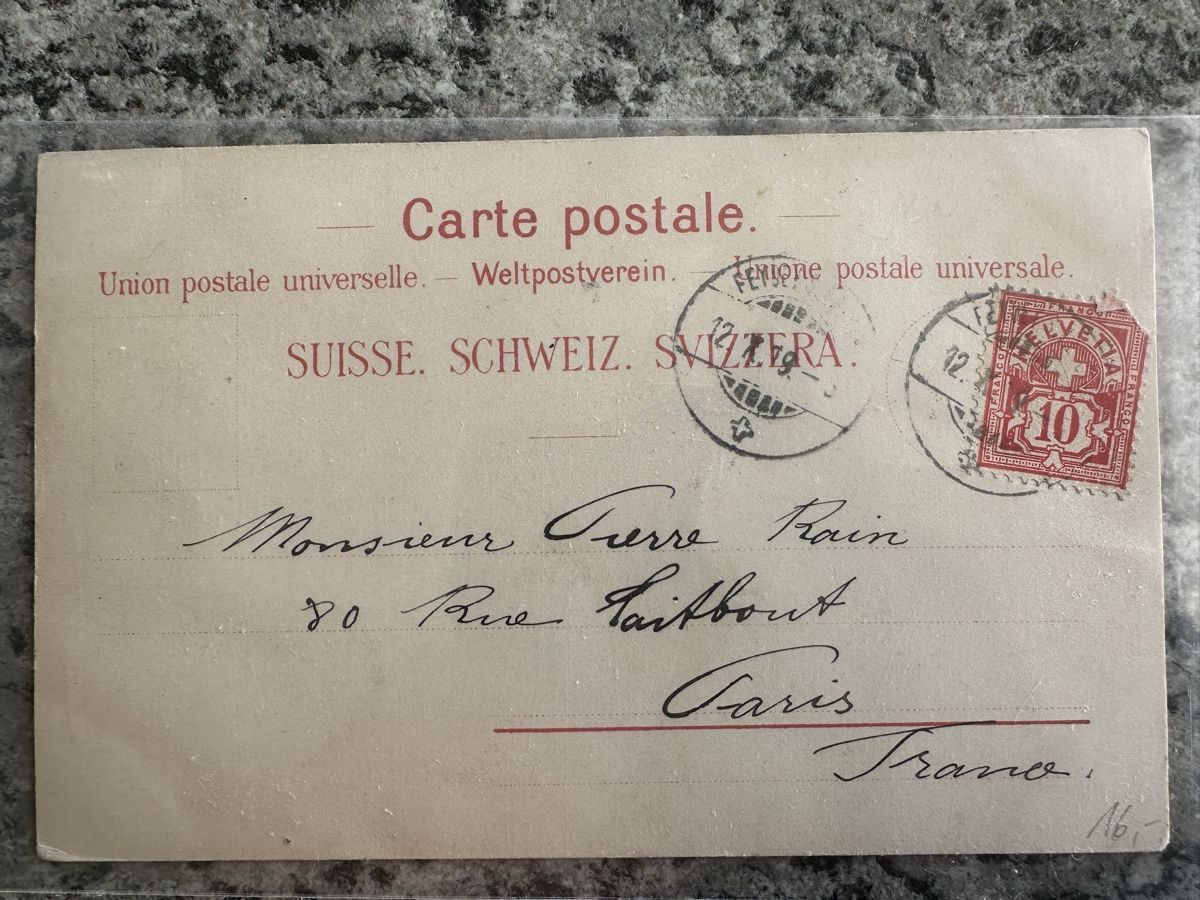 Carte postale.
Union postale universelle. — Weltpostverein. — Unione postale universale.
SUISSE. SCHWEIZ. SVIZZERA.
12.
12.
FRANCO
FRANCO
FRANCO
HELVETIA
10
Monsieur Pierre Rain
80 Rue Taitbout
Paris
France.
16,-